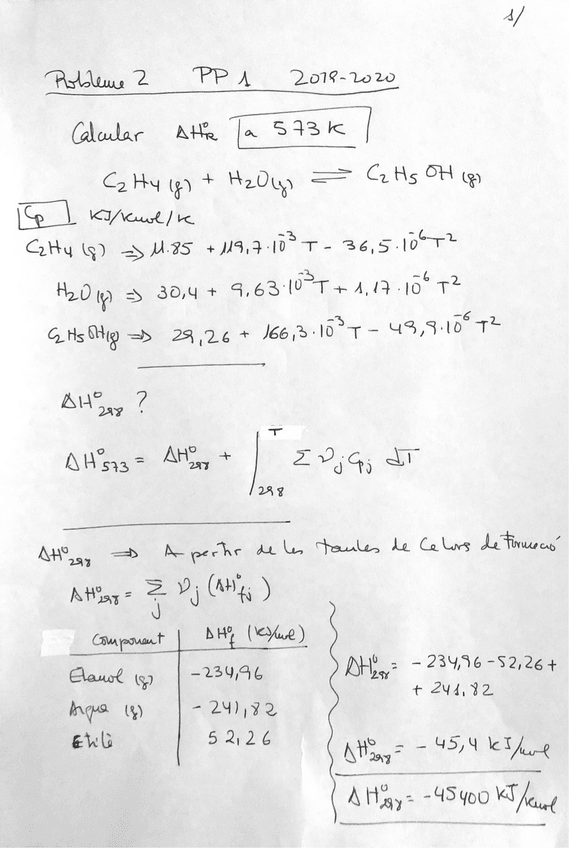 1/
Problema 2 PP 1 2019-2020
Calcular ΔH°R a 573 K
C2H4 (g) + H2O (g) ⇌ C2H5OH (g)
Cp KJ/Kmol/K
C2H4 (g) ⇒ 11.85 + 119,7·10⁻³ T - 36,5·10⁻⁶ T²
H2O (g) ⇒ 30,4 + 9,63·10⁻³ T + 1,17·10⁻⁶ T²
C2H5OH (g) ⇒ 29,26 + 166,3·10⁻³ T - 49,9·10⁻⁶ T²
ΔH°298 ?
ΔH°573 = ΔH°298 + ∫298^T Σ νj Cpj dT
ΔH°298 ⇒ A partir de les taules de Calors de Formació
ΔH°298 = Σj νj (ΔH°fj)
Component ΔH°f (KJ/mol)
Etanol (g) -234,96
Aigua (g) -241,82
Etilè 52,26
ΔH°298 = -234,96 - 52,26 +
+ 241,82
ΔH°298 = -45,4 kJ/mol
ΔH°298 = -45400 KJ/Kmol